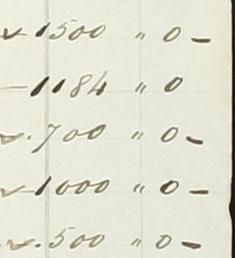 1500 " 0 –
1184 " 0
700 " 0 –
1000 " 0 –
500 " 0 –